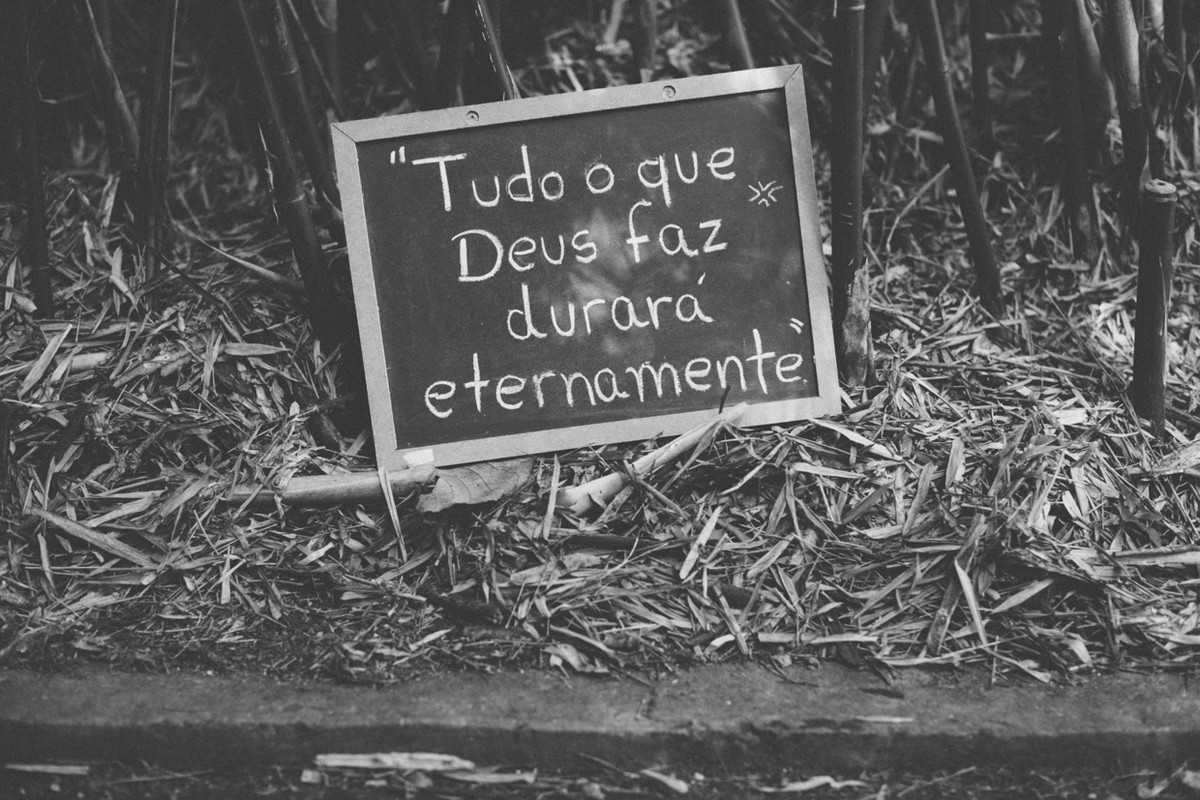 "Tudo o que
Deus faz
durará
eternamente"